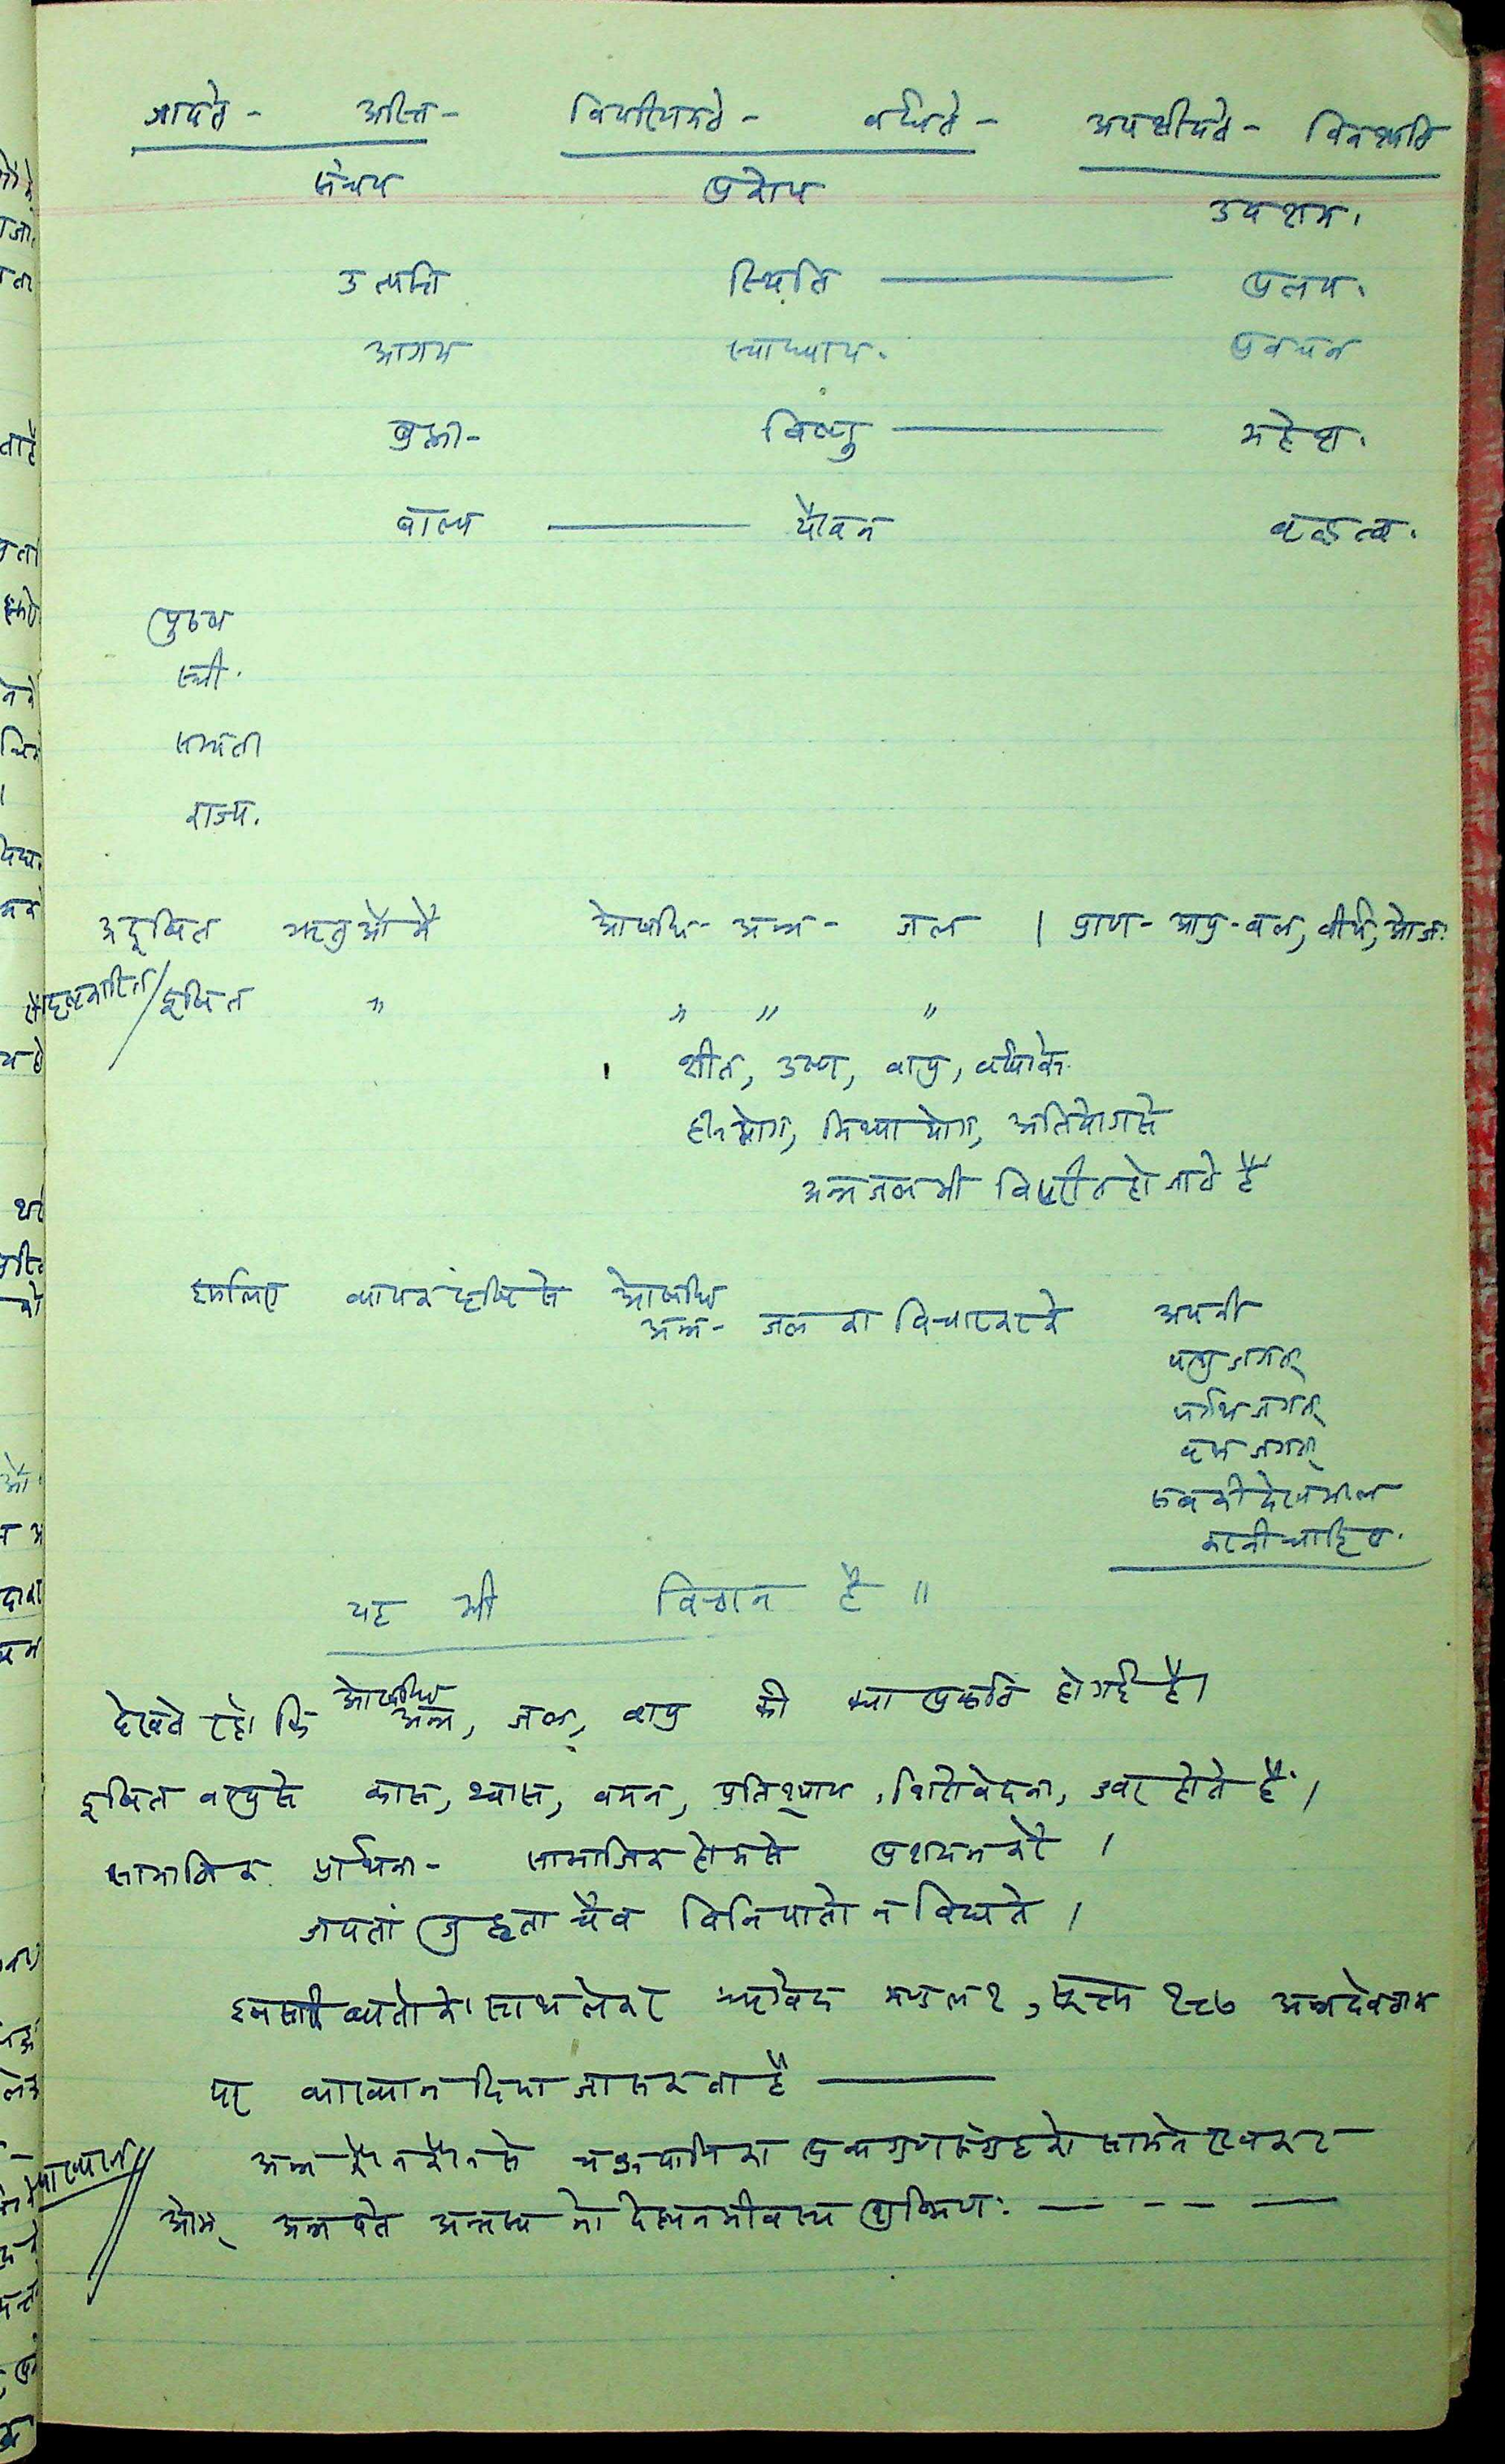 जायते - अस्ति - विपरिणमते - वर्धते - अपक्षीयते - विनश्यति
संचय प्रकोप उपशम.
उत्पत्ति स्थिति प्रलय.
आगम स्वाध्याय. प्रवचन
ब्रह्मा - विष्णु महेश.
बाल्य यौवन वृद्धत्व.
पुरुष
स्त्री.
सम्पत्ती
राज्य.
अदूषित ऋतुओंमें ओषधि - अन्न - जल । प्राण - आयु - बल, वीर्य, ओज.
दूषित " " " "
शीत, उष्ण, वायु, वर्षाके
हीनयोग, मिथ्या योग, अतियोगसे
अन्न जल भी विपरीत हो जाते हैं
इसलिए व्यापक दृष्टि से ओषधि
अन्न - जल का विचार करके अपनी
पशु जगत्
पक्षि जगत्
वृक्ष जगत्
सबकी देखभाल
करनी चाहिए.
यह भी विज्ञान है ॥
देखते रहो कि ओषधि अन्न, जल, वायु की क्या प्रकृति हो गई है।
दूषित वायुसे कास, श्वास, वमन, प्रतिश्याय, शिरोवेदना, ज्वर होते हैं।
सामाजिक प्रार्थना - सामाजिक होमसे प्रशमन करें ।
जपतां जुह्वतां चैव विनिपातो न विद्यते ।
इन सारी बातोंको साथ लेकर ऋग्वेद मण्डल १, सूक्त १८७ अन्न देवताक
पर व्याख्यान दिया जा सकता है
व्याख्यान
अन्न कौन कौन से चक्रपाणि का द्रव्यगुणसंग्रहको सामने रखकर
ओम् अन्नपते अन्नस्य नो देह्यनमीवस्य शुष्मिणः — - - —